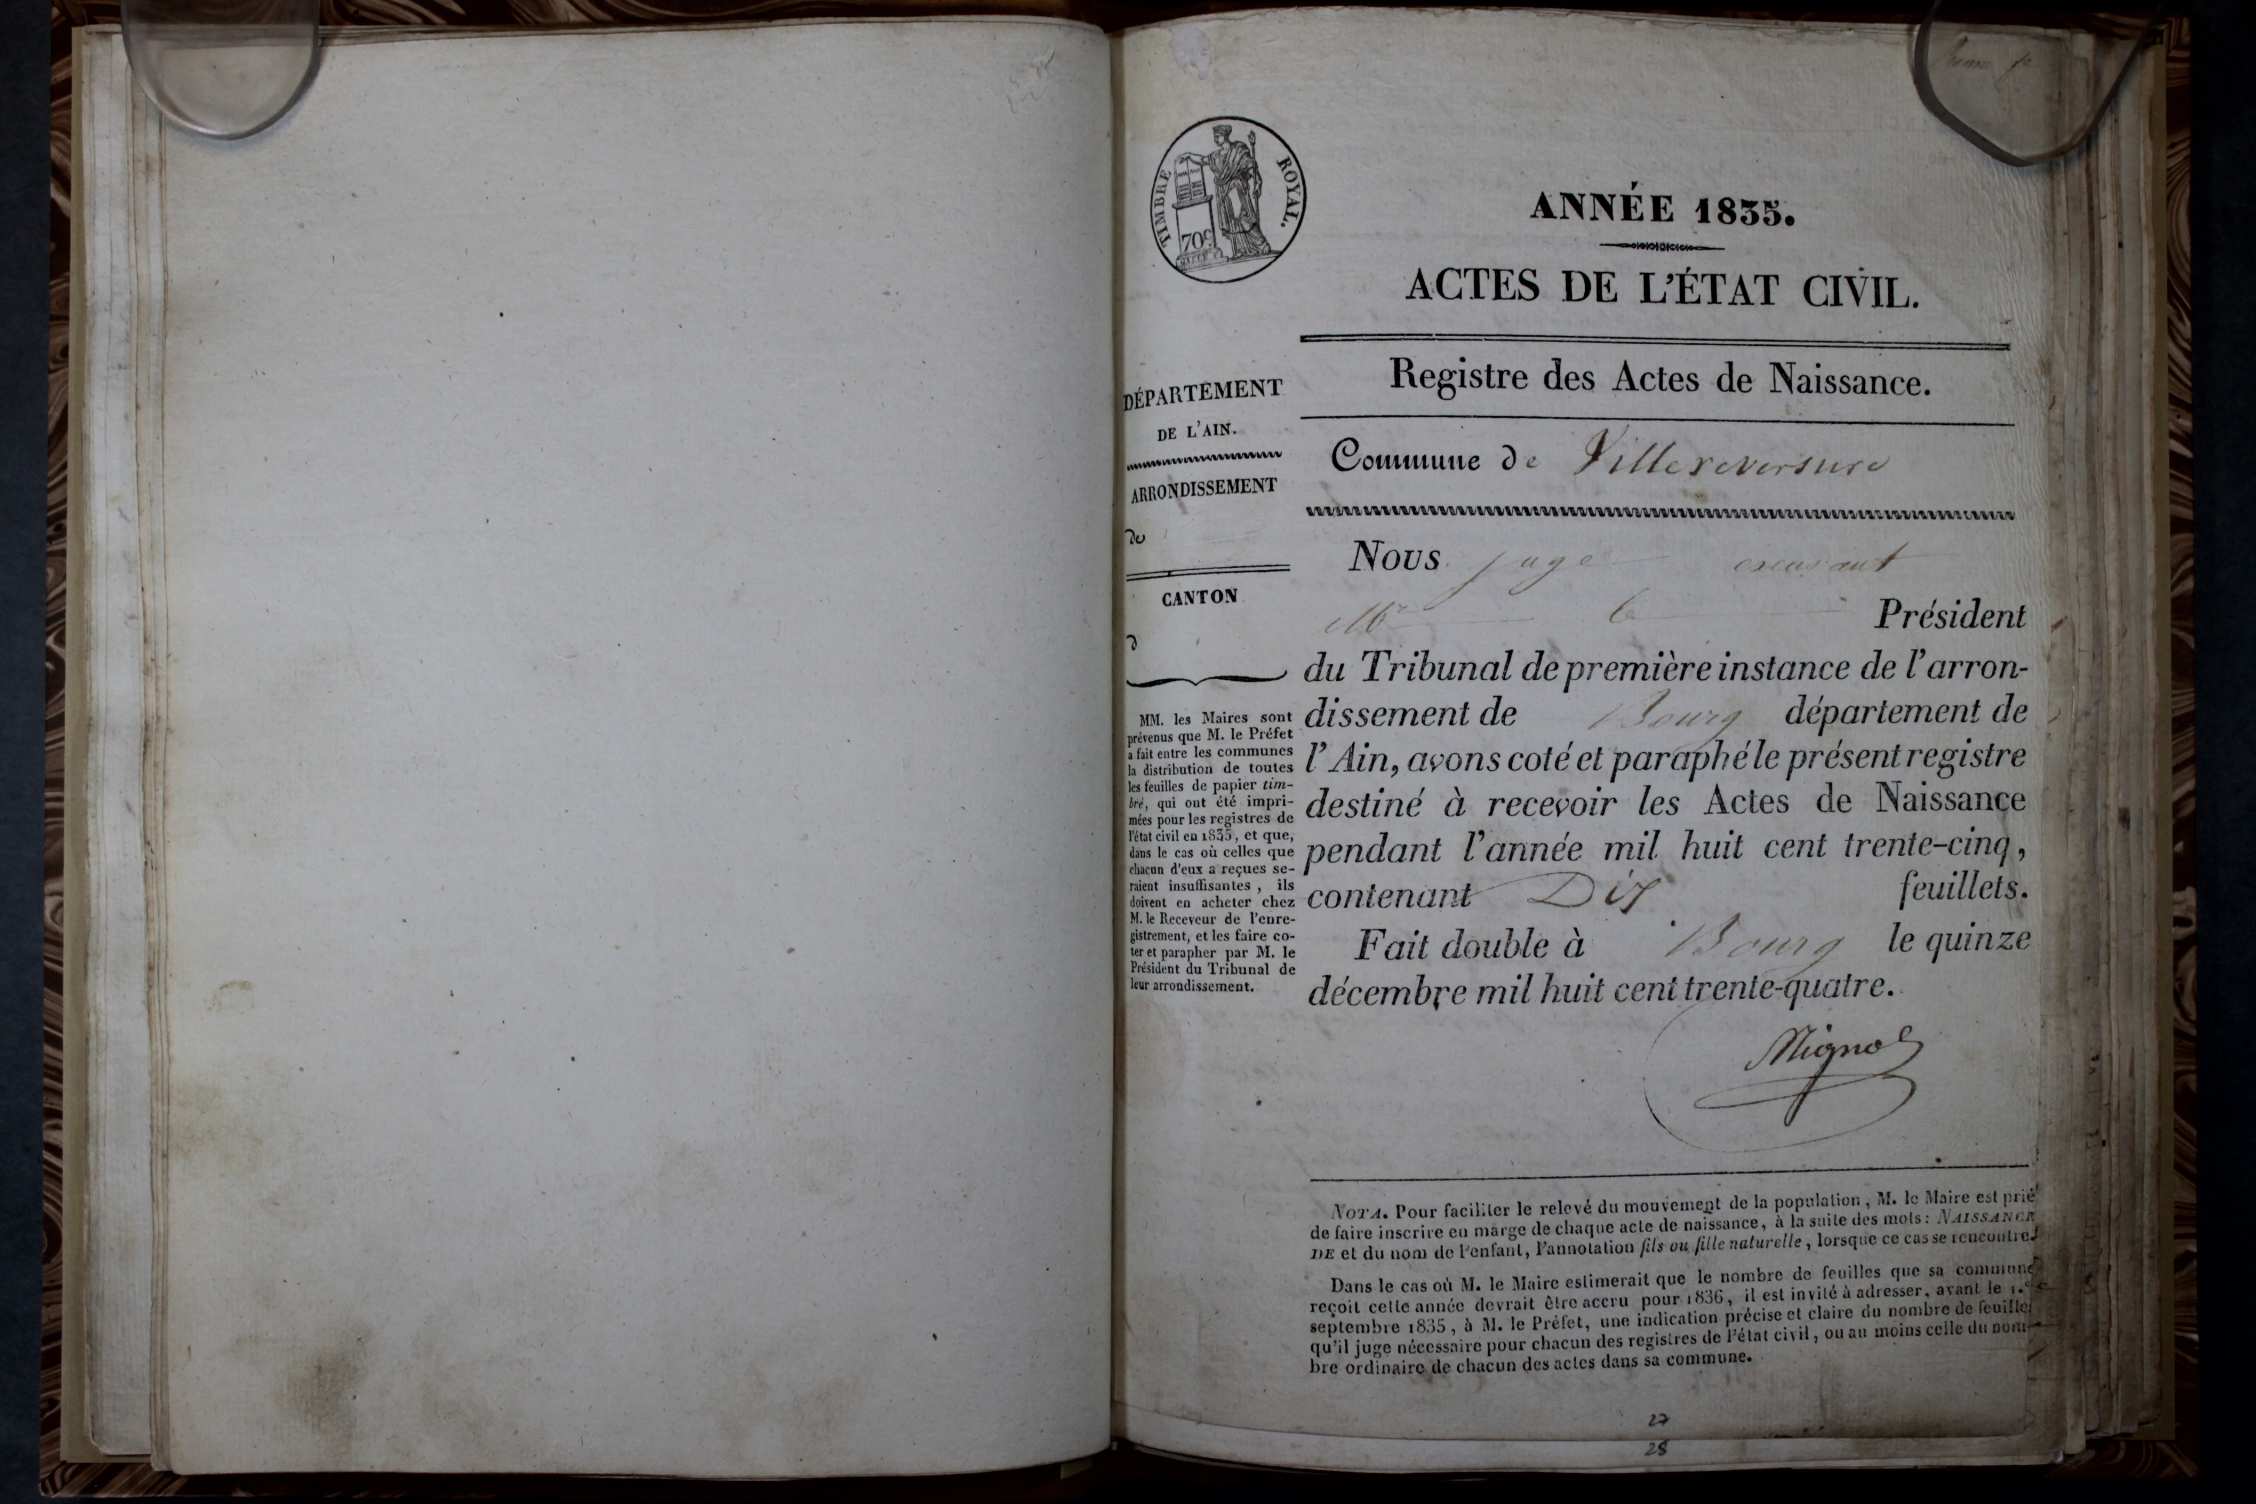 TIMBRE ROYAL.
70c
ANNÉE 1835.
ACTES DE L'ÉTAT CIVIL.
Registre des Actes de Naissance.
DÉPARTEMENT
DE L'AIN.
ARRONDISSEMENT
de
CANTON
d
MM. les Maires sont
prévenus que M. le Préfet
a fait entre les communes
la distribution de toutes
les feuilles de papier tim-
bré, qui ont été impri-
mées pour les registres de
l'état civil en 1835, et que,
dans le cas où celles que
chacun d'eux a reçues se-
raient insuffisantes, ils
doivent en acheter chez
M. le Receveur de l'enre-
gistrement, et les faire co-
ter et parapher par M. le
Président du Tribunal de
leur arrondissement.
Commune de Villereversure
Nous juge
Mr le Président
du Tribunal de première instance de l'arron-
dissement de Bourg département de
l'Ain, avons coté et paraphé le présent registre
destiné à recevoir les Actes de Naissance
pendant l'année mil huit cent trente-cinq,
contenant Dix feuillets.
Fait double à Bourg le quinze
décembre mil huit cent trente-quatre.
NOTA. Pour faciliter le relevé du mouvement de la population, M. le Maire est prié
de faire inscrire en marge de chaque acte de naissance, à la suite des mots: NAISSANCE
DE et du nom de l'enfant, l'annotation fils ou fille naturelle, lorsque ce cas se rencontre.
Dans le cas où M. le Maire estimerait que le nombre de feuilles que sa commune
reçoit cette année devrait être accru pour 1836, il est invité à adresser, avant le 1.er
septembre 1835, à M. le Préfet, une indication précise et claire du nombre de feuilles
qu'il juge nécessaire pour chacun des registres de l'état civil, ou au moins celle du nom-
bre ordinaire de chacun des actes dans sa commune.
27
28